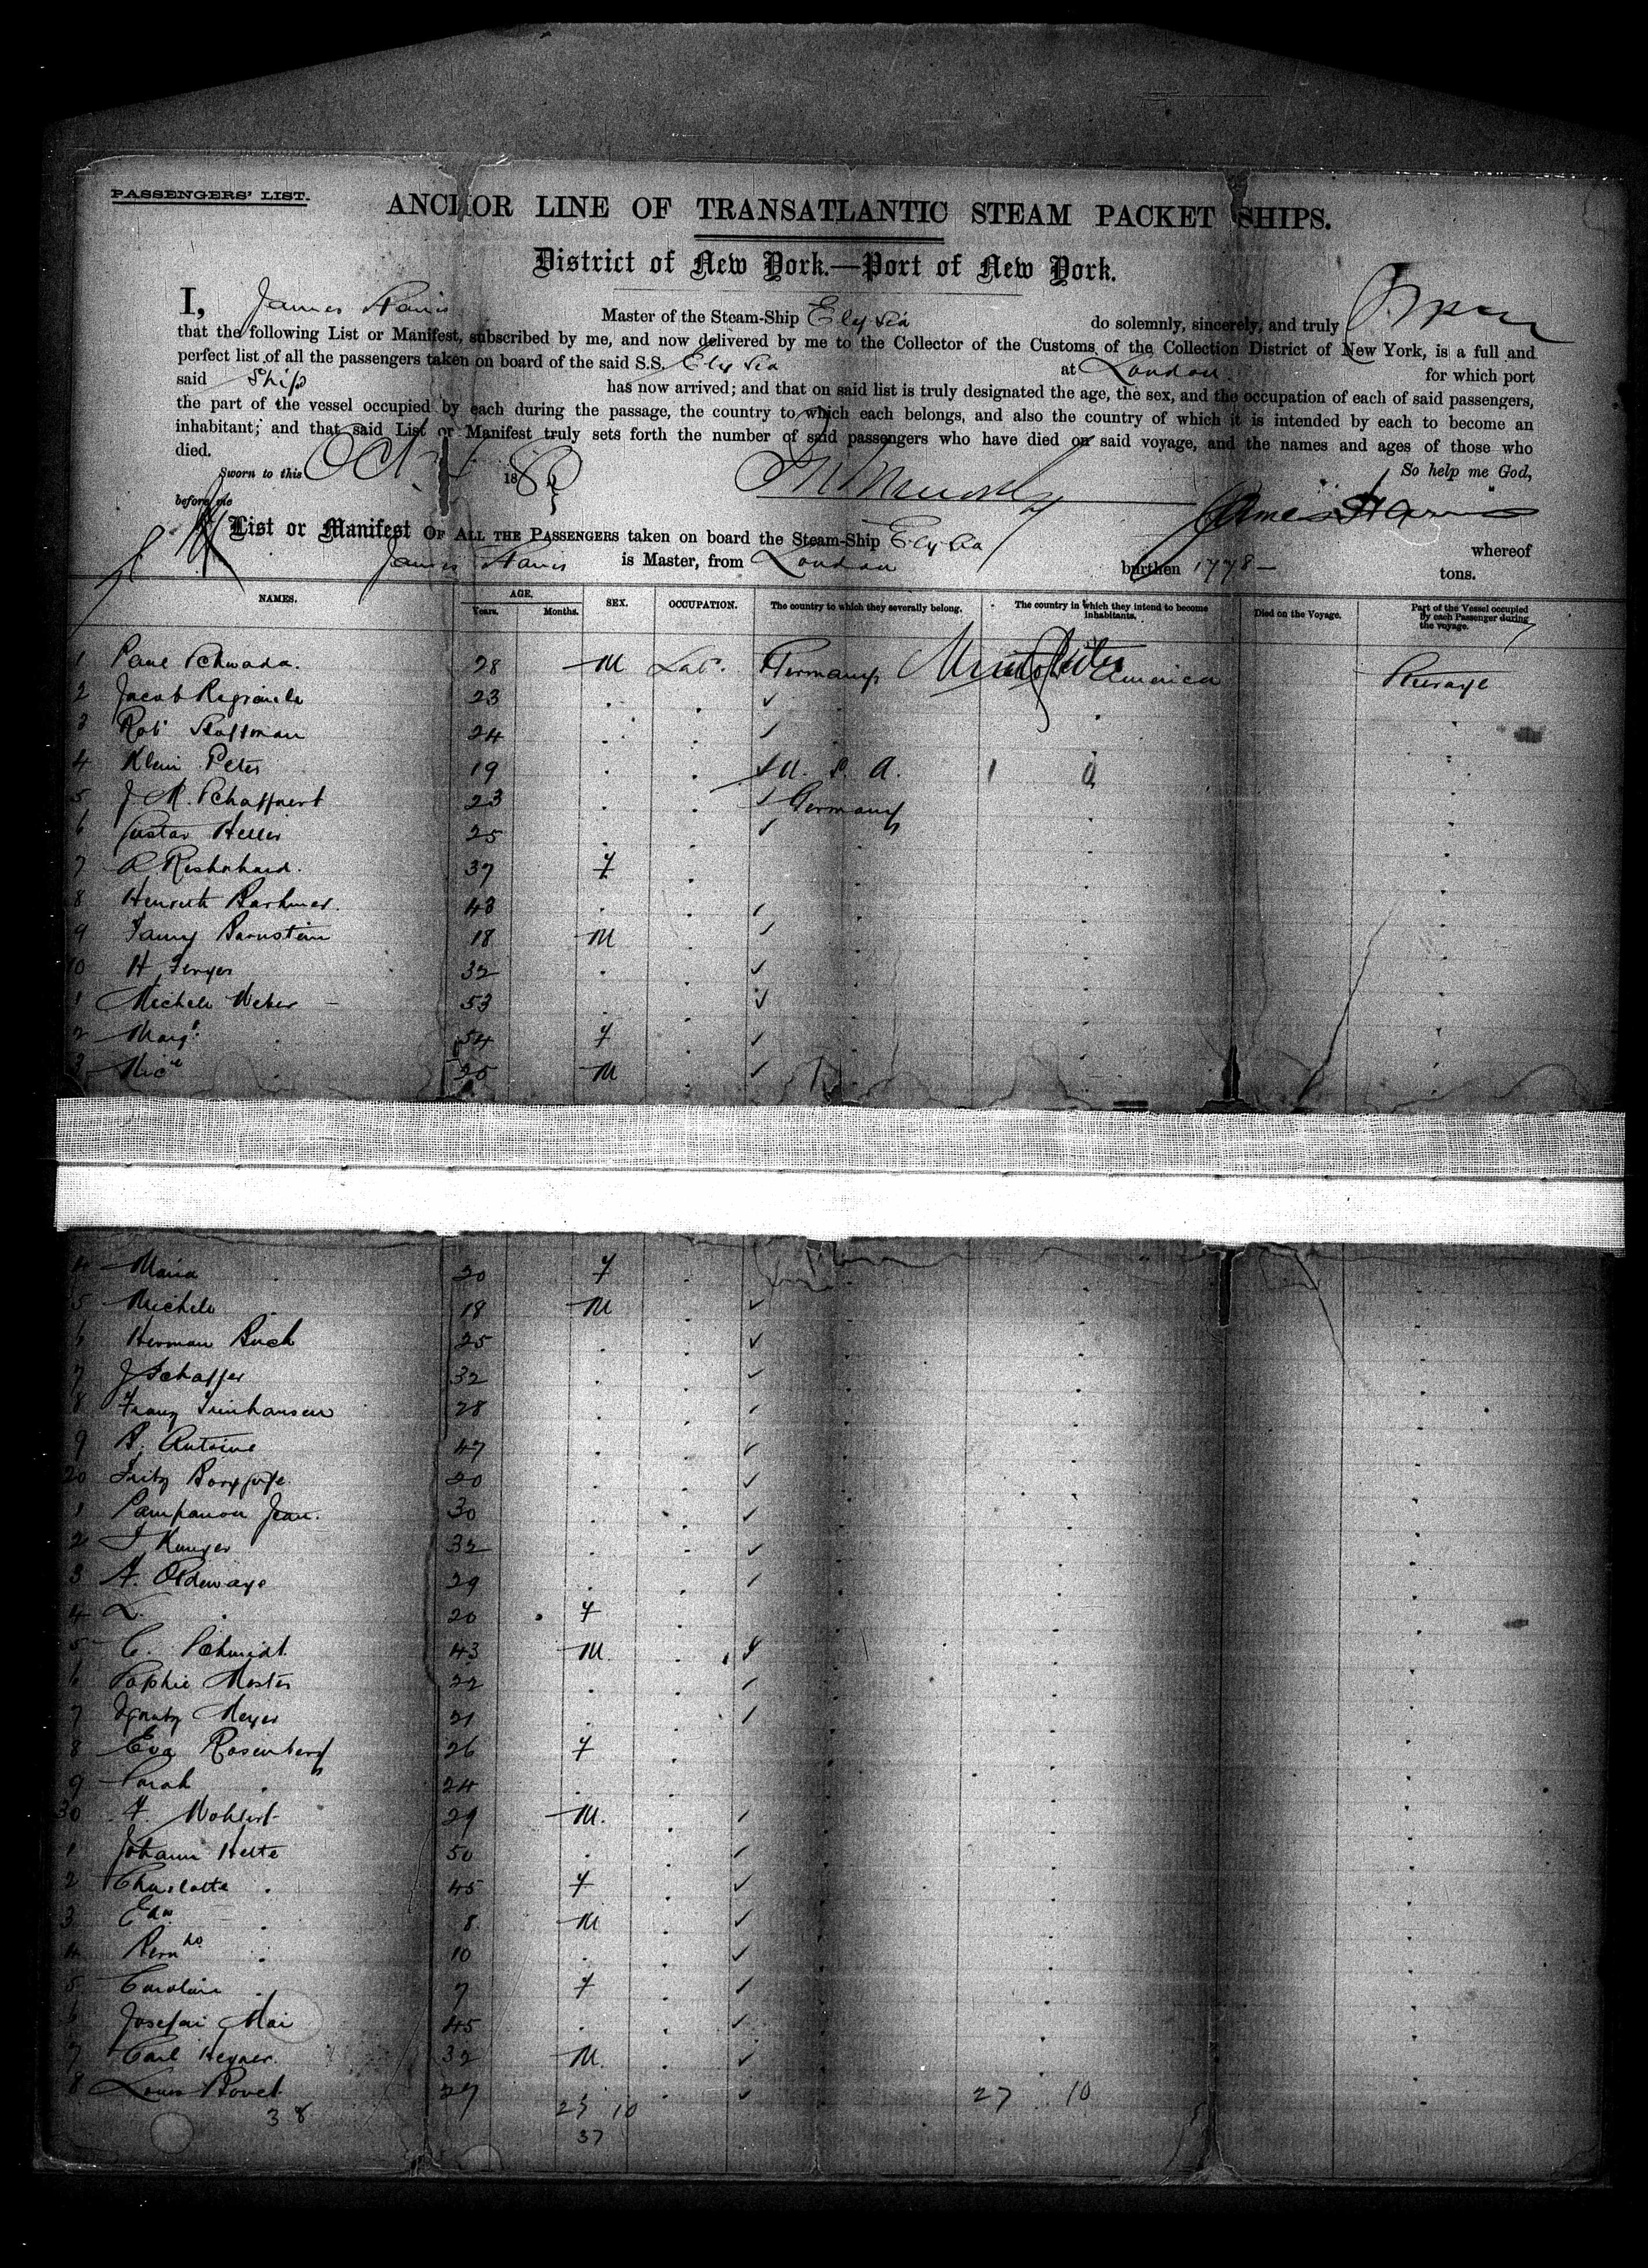 PASSENGERS' LIST.
ANCHOR LINE OF TRANSATLANTIC STEAM PACKET SHIPS.
District of New York.—Port of New York.
I, James Harris Master of the Steam-Ship Elysia do solemnly, sincerely, and truly
that the following List or Manifest, subscribed by me, and now delivered by me to the Collector of the Customs of the Collection District of New York, is a full and
perfect list of all the passengers taken on board of the said S.S. Elysia at London for which port
said Ship has now arrived; and that on said list is truly designated the age, the sex, and the occupation of each of said passengers,
the part of the vessel occupied by each during the passage, the country to which each belongs, and also the country of which it is intended by each to become an
inhabitant; and that said List or Manifest truly sets forth the number of said passengers who have died on said voyage, and the names and ages of those who
died.
So help me God,
Sworn to this Oct 188
before me
James Harris
List or Manifest OF ALL THE PASSENGERS taken on board the Steam-Ship Elysia whereof
James Harris is Master, from London burthen 1778 — tons.
NAMES. AGE. Years. Months. SEX. OCCUPATION. The country to which they severally belong. The country in which they intend to become inhabitants. Died on the Voyage. Part of the Vessel occupied by each Passenger during the voyage.
1 Paul Schwada. 28 M Lab. Germany America Steerage
2 Jacob 23
3 Robt 24
4 Klein Peter 19 U. S. A.
5 J M. Schaffnert 23 Germany
6 Gustav Heller 25
7 R 37 f
8 43
9 Fanny Bernstein 18 M
10 H 32
1 Michele Weber 53
2 Margt 54 f
3 25 M
4 Maria 20 f
5 Michele 18 M
6 Herman Buch 25
7 J Schaffer 32
8 Franz 28
9 A. Antoine 47
20 Fritz 20
1 Pampanon Jean. 30
2 32
3 A. 29
4 L. 20 f
5 C. Schmidt. 43 M.
6 Sophie Moster 22
7 Ignatz Meyer 21
8 Eva Rosenberg 26 f
9 Sarah 24
30 29 M.
1 Johann Helte 50
2 Charlotte 45 f
3 Edw 8 M
4 Bernhd 10
5 Carolin 7 f
6 Josefin Mai 45
7 Carl Heyner. 32 M.
8 Louis Bovet 27
27 10
38
25 10
37